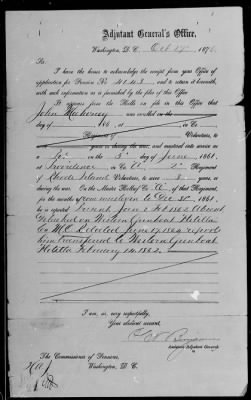 Adjutant General's Office,
Washington, D. C., Oct 187
Sir:
I have the honor to acknowledge the receipt from your Office of
application for Pension No. and to return it herewith,
with such information as is furnished by the files of this Office.
It appears from the Rolls on file in this Office that
John Mahoney was enrolled on the
day of 186 , at , in Co.
Regiment of Volunteers, to
serve years or during the war, and mustered into service as
a on the 5 day of June 1861,
at Providence in Co. " ", 2 Regiment
of Rhode Island Volunteers, to serve 3 years, or
during the war. On the Muster Roll of Co. " ", of that Regiment,
for the months of from muster in to Dec 31, 1861,
he is reported Absent
Detached on Western Gunboat Flotilla
Co M.R. dated June 17 1864 reports
him transferred to Western Gunboat
Flotilla February 14, 1862.
I am, sir, very respectfully,
Your obedient servant,
Assistant Adjutant General.
The Commissioner of Pensions,
Washington, D. C.